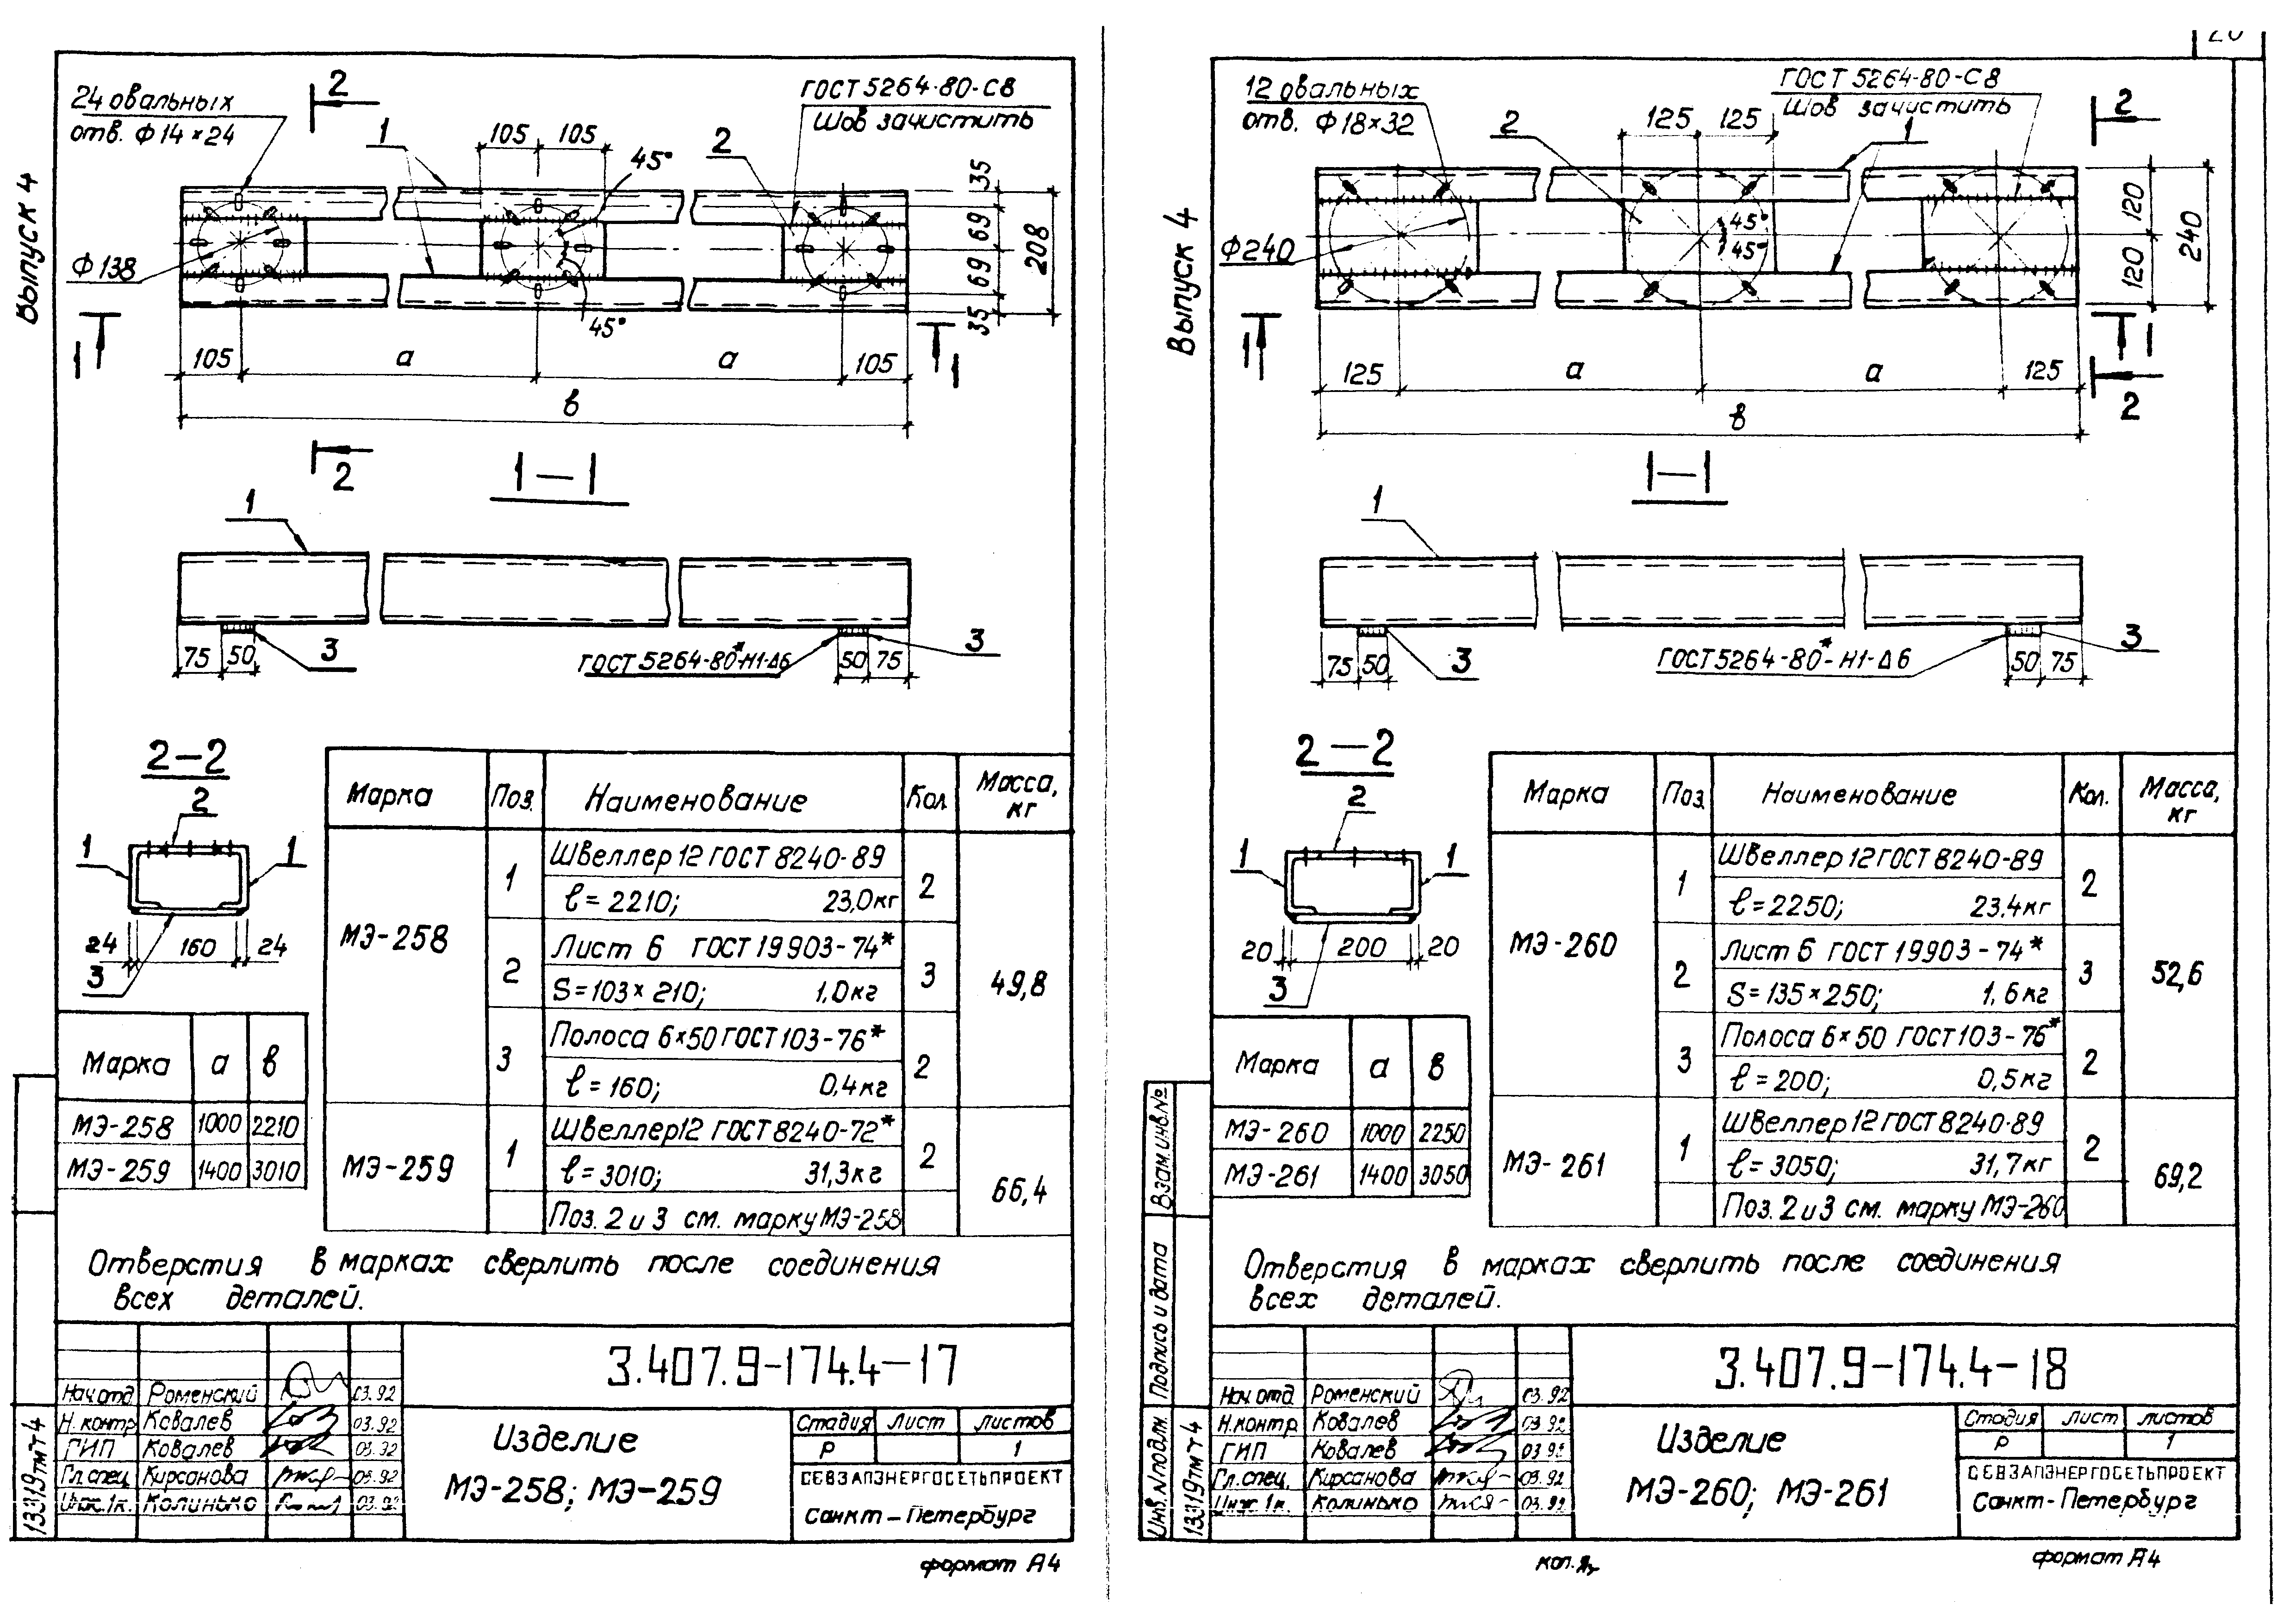 Выпуск 4
24 овальных
отв. Ф14×24
2
1
105 105
45°
2
ГОСТ 5264-80-С8
Шов зачистить
35
69
69
35
208
Ф138
45°
1
105 а а 105
1
в
2
1—1
1
75 50 3
ГОСТ 5264-80*-Н1-Δ6
50 75
3
2—2
2
1 1
24 160 24
3
Марка Поз. Наименование Кол. Масса, кг
МЭ-258 1 Швеллер 12 ГОСТ 8240-89
ℓ=2210; 23,0кг 2
2 Лист 6 ГОСТ 19903-74*
S=103×210; 1,0кг 3 49,8
3 Полоса 6×50 ГОСТ 103-76*
ℓ=160; 0,4кг 2
МЭ-259 1 Швеллер 12 ГОСТ 8240-72*
ℓ=3010; 31,3кг 2 66,4
Поз. 2 и 3 см. марку МЭ-258
Марка а в
МЭ-258 1000 2210
МЭ-259 1400 3010
Отверстия в марках сверлить после соединения
всех деталей.
3.407.9-174.4-17
Нач.отд Роменский 03.92
Н.контр Ковалев 03.92
ГИП Ковалев 03.92
Гл.спец. Кирсанова 03.92
Инж.1к. Колинько 03.92
Изделие
МЭ-258; МЭ-259
Стадия Лист Листов
Р 1
СЕВЗАПЭНЕРГОСЕТЬПРОЕКТ
Санкт-Петербург
13319тм-т4
формат А4
Выпуск 4
12 овальных
отв. Ф18×32
2
125 125
ГОСТ 5264-80-С8
Шов зачистить
1
2
120
120
240
Ф240
45°
45°
1
125 а а 125
1
в
2
1—1
1
75 50 3
ГОСТ 5264-80*-Н1-Δ6
50 75
3
2—2
2
1 1
20 200 20
3
Марка Поз. Наименование Кол. Масса, кг
МЭ-260 1 Швеллер 12 ГОСТ 8240-89
ℓ=2250; 23,4кг 2
2 Лист 6 ГОСТ 19903-74*
S=135×250; 1,6кг 3 52,6
3 Полоса 6×50 ГОСТ 103-76*
ℓ=200; 0,5кг 2
МЭ-261 1 Швеллер 12 ГОСТ 8240-89
ℓ=3050; 31,7кг 2 69,2
Поз. 2 и 3 см. марку МЭ-260
Марка а в
МЭ-260 1000 2250
МЭ-261 1400 3050
Отверстия в марках сверлить после соединения
всех деталей.
Взам.инв.№
Подпись и дата
Инв.№подлн
13319тм-т4
3.407.9-174.4-18
Нач.отд Роменский 03.92
Н.контр Ковалев 03.92
ГИП Ковалев 03.92
Гл.спец. Кирсанова 03.92
Инж.1к. Колинько 03.92
Изделие
МЭ-260; МЭ-261
Стадия Лист Листов
Р 1
СЕВЗАПЭНЕРГОСЕТЬПРОЕКТ
Санкт-Петербург
кол.
формат А4